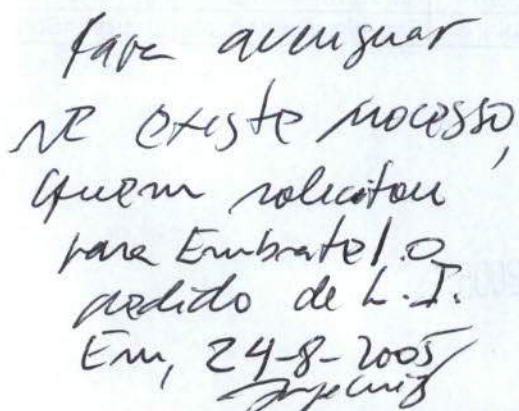 Para averiguar
se existe processo,
quem solicitou
para Embratel o
pedido de L.I.
Em, 24-8-2005